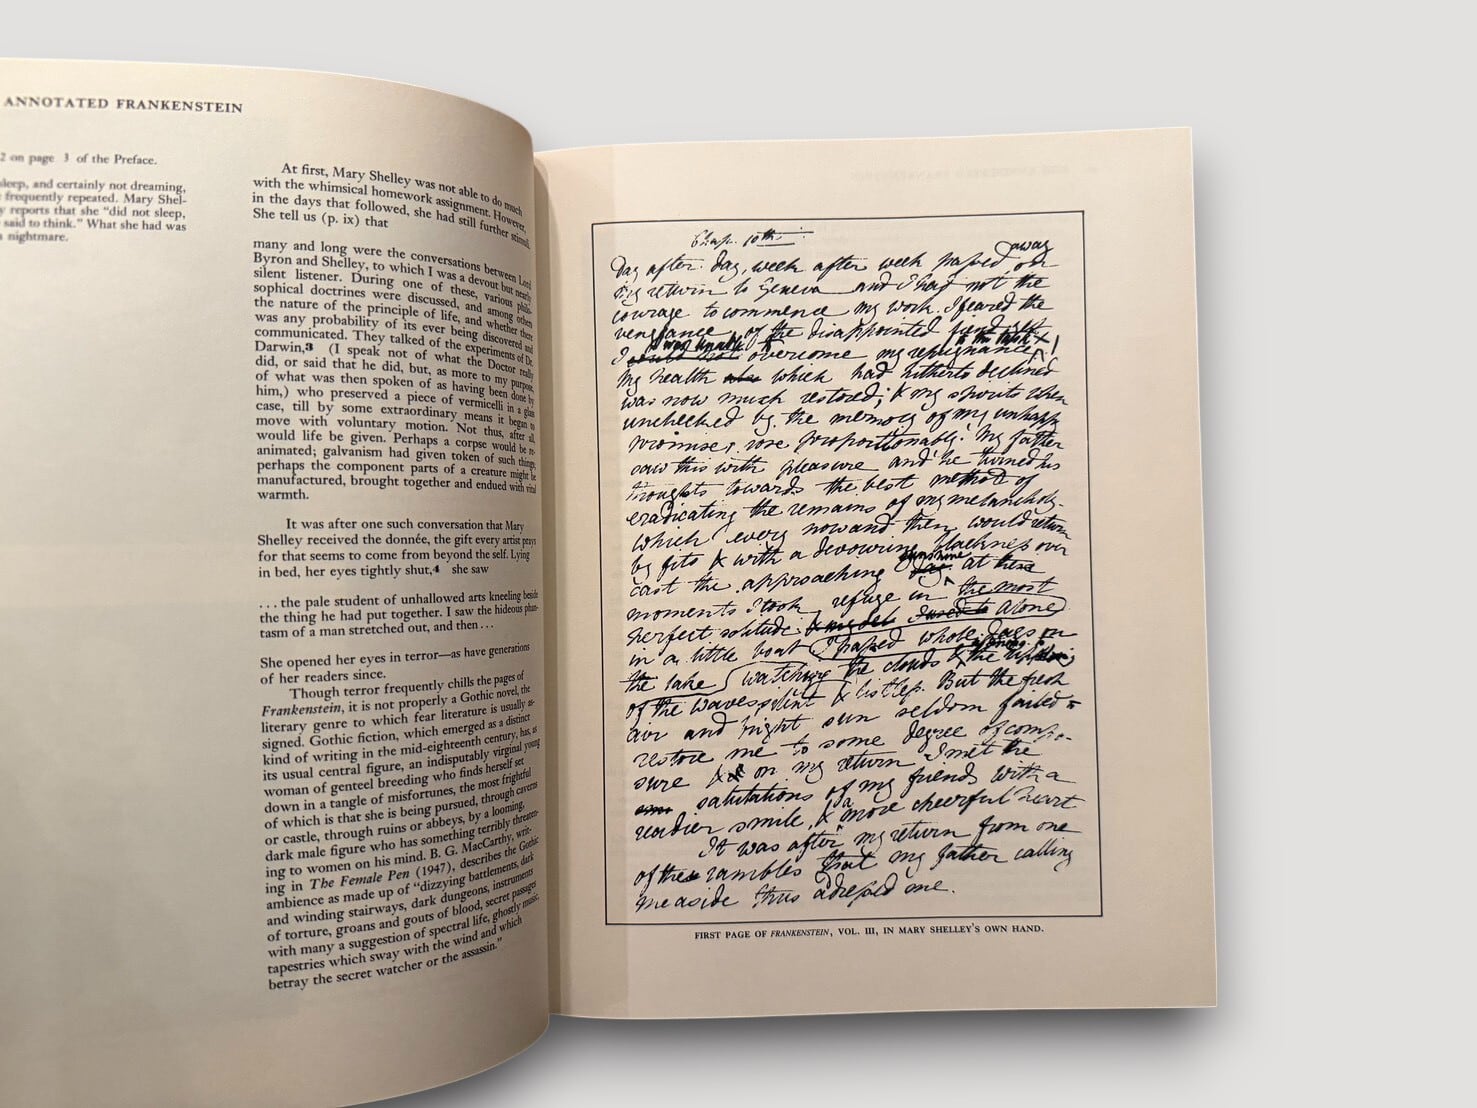 ANNOTATED FRANKENSTEIN
2 on page 3 of the Preface.
sleep, and certainly not dreaming,
frequently repeated. Mary Shel-
y reports that she “did not sleep,
said to think.” What she had was
nightmare.
At first, Mary Shelley was not able to do much
with the whimsical homework assignment. However,
in the days that followed, she had still further stimuli.
She tell us (p. ix) that
many and long were the conversations between Lord
Byron and Shelley, to which I was a devout but nearly
silent listener. During one of these, various philo-
sophical doctrines were discussed, and among others
the nature of the principle of life, and whether there
was any probability of its ever being discovered and
communicated. They talked of the experiments of Dr.
Darwin,3 (I speak not of what the Doctor really
did, or said that he did, but, as more to my purpose,
of what was then spoken of as having been done by
him,) who preserved a piece of vermicelli in a glass
case, till by some extraordinary means it began to
move with voluntary motion. Not thus, after all,
would life be given. Perhaps a corpse would be re-
animated; galvanism had given token of such things;
perhaps the component parts of a creature might be
manufactured, brought together and endued with vital
warmth.
It was after one such conversation that Mary
Shelley received the donnée, the gift every artist prays
for that seems to come from beyond the self. Lying
in bed, her eyes tightly shut,4 she saw
. . . the pale student of unhallowed arts kneeling beside
the thing he had put together. I saw the hideous phan-
tasm of a man stretched out, and then . . .
She opened her eyes in terror—as have generations
of her readers since.
Though terror frequently chills the pages of
Frankenstein, it is not properly a Gothic novel, the
literary genre to which fear literature is usually as-
signed. Gothic fiction, which emerged as a distinct
kind of writing in the mid-eighteenth century, has, as
its usual central figure, an indisputably virginal young
woman of genteel breeding who finds herself set
down in a tangle of misfortunes, the most frightful
of which is that she is being pursued, through caverns
or castle, through ruins or abbeys, by a looming,
dark male figure who has something terribly threaten-
ing to women on his mind. B. G. MacCarthy, writ-
ing in The Female Pen (1947), describes the Gothic
ambience as made up of “dizzying battlements, dark
and winding stairways, dark dungeons, instruments
of torture, groans and gouts of blood, secret passages
with many a suggestion of spectral life, ghostly music,
tapestries which sway with the wind and which
betray the secret watcher or the assassin.”
Chap. 10th
away
Day after day, week after week passed on
my return to Geneva and I had not the
courage to commence my work. I feared the
vengeance of the disappointed fiend yet
was unable to to the task
I could not overcome my repugnance
My health which had hitherto declined
was now much restored; & my spirits when
unchecked by the memory of my unhappy
promise, rose proportionably. My father
saw this with pleasure and he turned his
thoughts towards the best method of
eradicating the remains of my melancholy
which every now and then would return
by fits & with a devouring blackness over
sunshine
cast the approaching day. at these
moments I took refuge in the most
perfect solitude I used to alone
in a little boat I passed whole days on
the lake watching the clouds & the
of the waves silent & listless. But the fresh
air and bright sun seldom failed to
restore me to some degree of compo-
sure & on my return I met the
salutations of my friends with a
readier smile, & a more cheerful heart
It was after my return from one
of these rambles that my father calling
me aside thus adressed me.
FIRST PAGE OF FRANKENSTEIN, VOL. III, IN MARY SHELLEY'S OWN HAND.